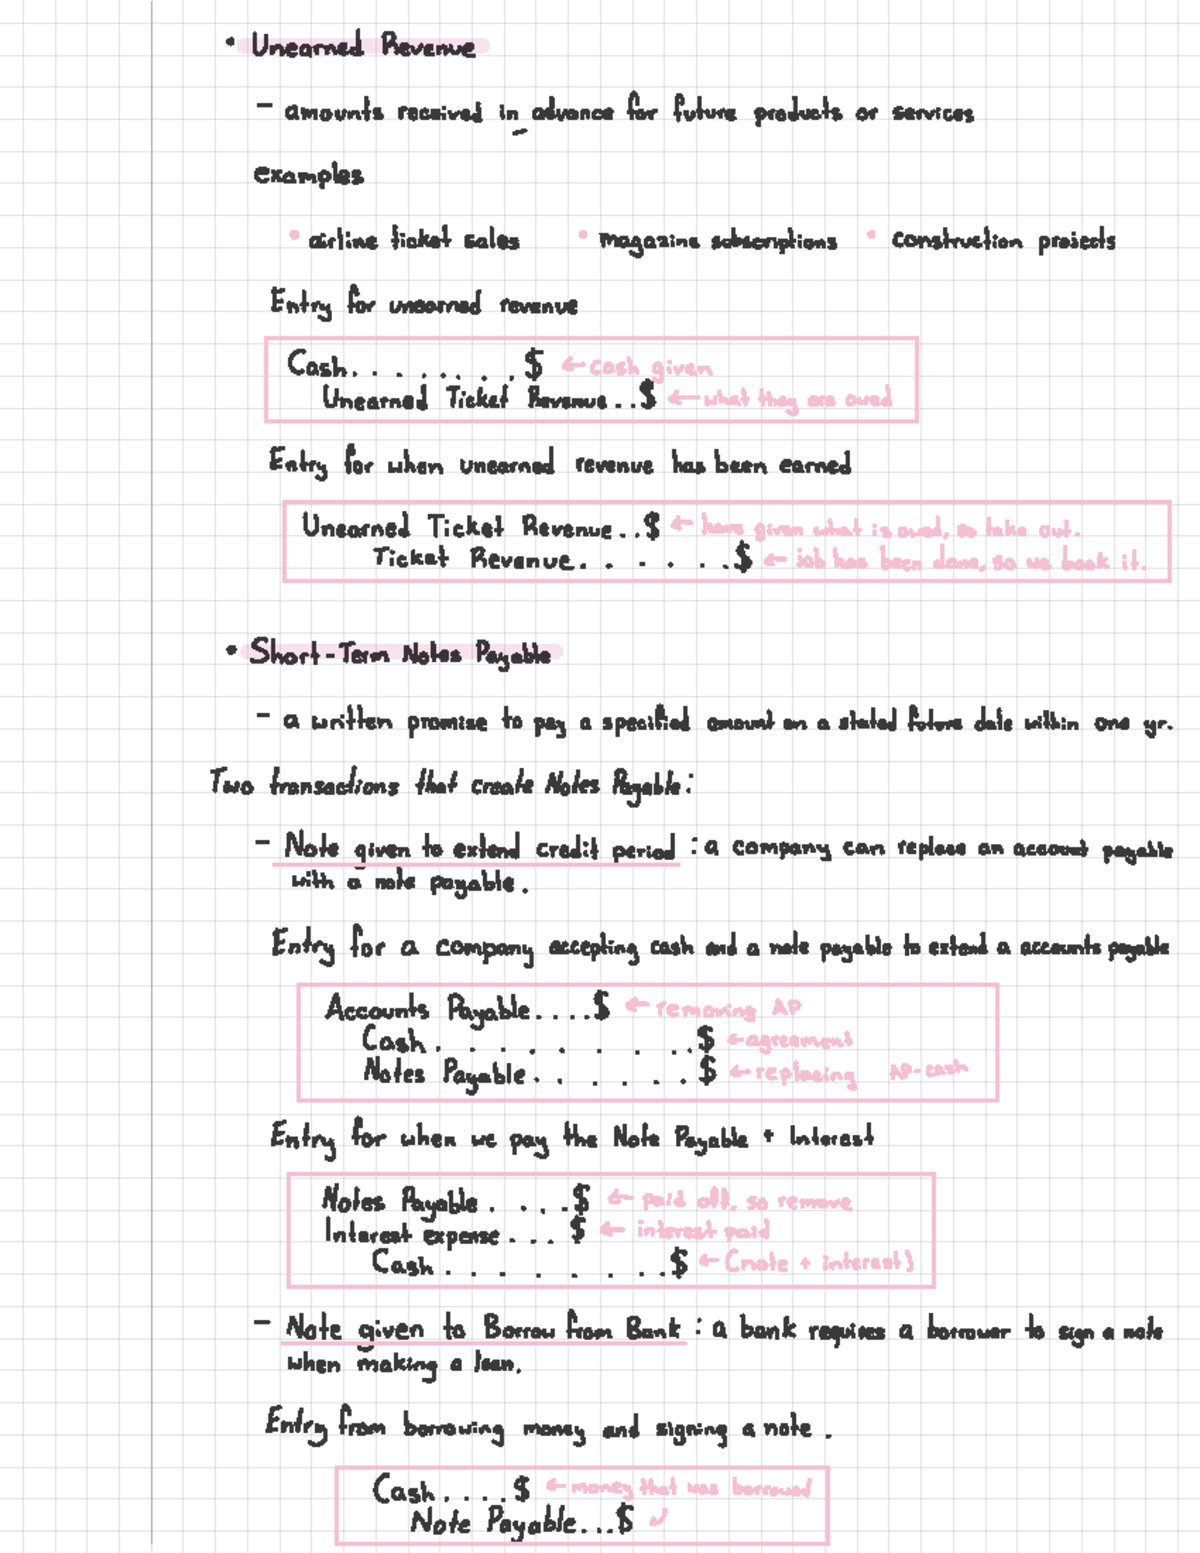 • Unearned Revenue
– amounts received in advance for future products or services
examples
• airline ticket sales • magazine subscriptions • construction projects
Entry for unearned revenue
Cash........$ ← cash given
Unearned Ticket Revenue..$ ← what they are owed
Entry for when unearned revenue has been earned
Unearned Ticket Revenue..$ ← have given what is owed, so take out.
Ticket Revenue.......$ ← job has been done, so we book it.
• Short-Term Notes Payable
– a written promise to pay a specified amount on a stated future date within one yr.
Two transactions that create Notes Payable:
– Note given to extend credit period : a company can replace an account payable
with a note payable.
Entry for a company accepting cash and a note payable to extend a accounts payable
Accounts Payable....$ ← removing AP
Cash.........$ ← agreement
Notes Payable.......$ ← replacing AP-cash
Entry for when we pay the Note Payable + Interest
Notes Payable....$ ← paid off, so remove
Interest expense... $ ← interest paid
Cash.........$ ← (note + interest)
– Note given to Borrow from Bank : a bank requires a borrower to sign a note
when making a loan.
Entry from borrowing money and signing a note.
Cash....$ ← money that was borrowed
Note Payable...$ ↙